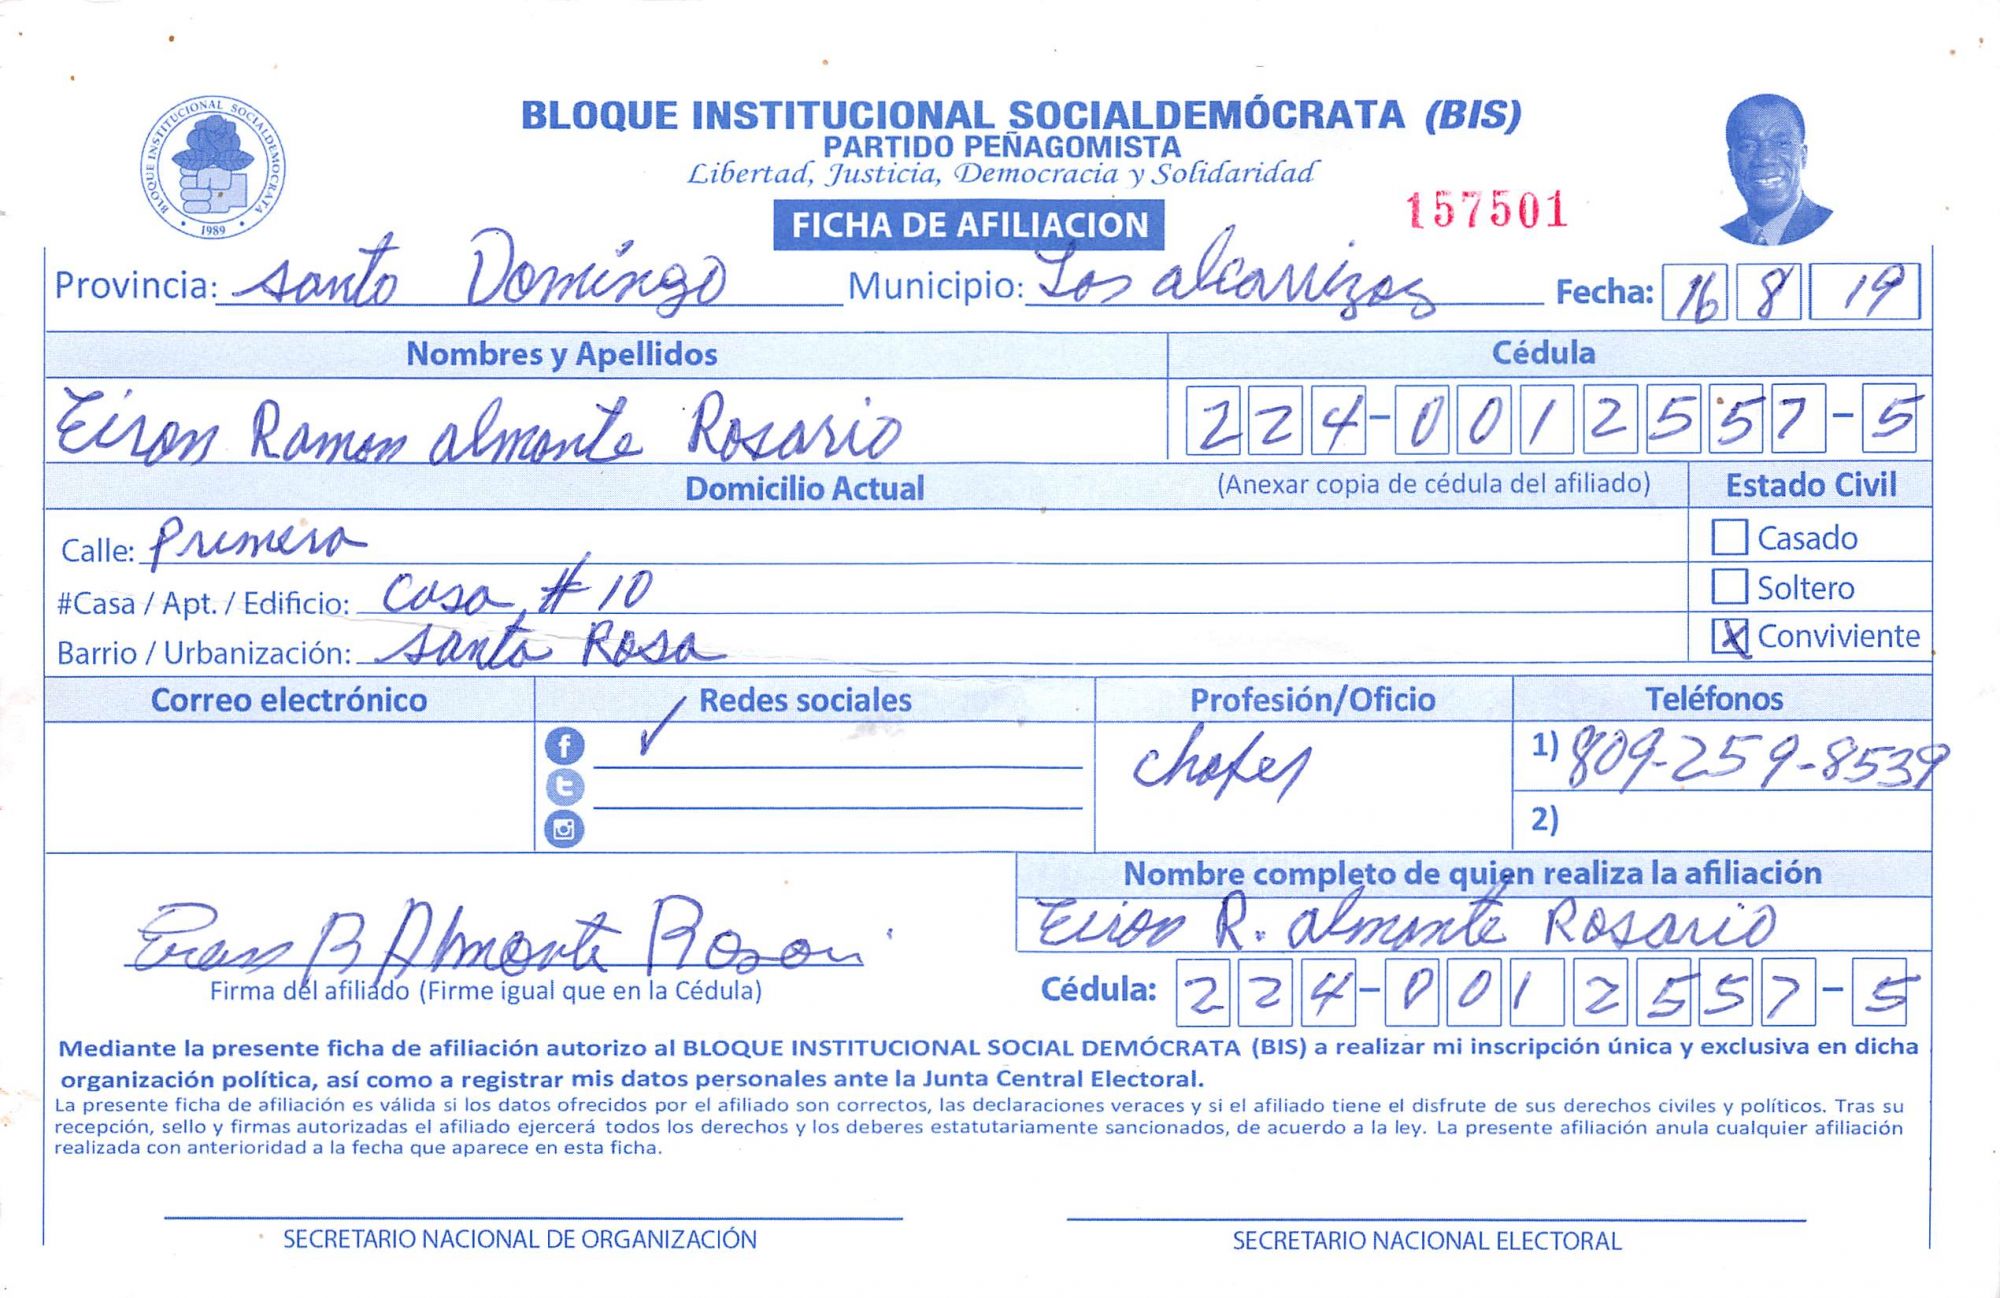 BLOQUE INSTITUCIONAL SOCIALDEMOCRATA
1989
BLOQUE INSTITUCIONAL SOCIALDEMÓCRATA (BIS)
PARTIDO PEÑAGOMISTA
Libertad, Justicia, Democracia y Solidaridad
157501
FICHA DE AFILIACION
Provincia: Santo Domingo Municipio: Los alcarrizos Fecha: 16 8 19
Nombres y Apellidos Cédula
Eiron Ramon almonte Rosario 224-0012557-5
Domicilio Actual (Anexar copia de cédula del afiliado) Estado Civil
Calle: Primera Casado
#Casa / Apt. / Edificio: Casa # 10 Soltero
Barrio / Urbanización: Santa Rosa X Conviviente
Correo electrónico Redes sociales Profesión/Oficio Teléfonos
chofer 1) 809-259-8539
2)
Nombre completo de quien realiza la afiliación
Eiron R. almonte Rosario
R Almonte
Firma del afiliado (Firme igual que en la Cédula) Cédula: 224-0012557-5
Mediante la presente ficha de afiliación autorizo al BLOQUE INSTITUCIONAL SOCIAL DEMÓCRATA (BIS) a realizar mi inscripción única y exclusiva en dicha
organización política, así como a registrar mis datos personales ante la Junta Central Electoral.
La presente ficha de afiliación es válida si los datos ofrecidos por el afiliado son correctos, las declaraciones veraces y si el afiliado tiene el disfrute de sus derechos civiles y políticos. Tras su
recepción, sello y firmas autorizadas el afiliado ejercerá todos los derechos y los deberes estatutariamente sancionados, de acuerdo a la ley. La presente afiliación anula cualquier afiliación
realizada con anterioridad a la fecha que aparece en esta ficha.
SECRETARIO NACIONAL DE ORGANIZACIÓN SECRETARIO NACIONAL ELECTORAL